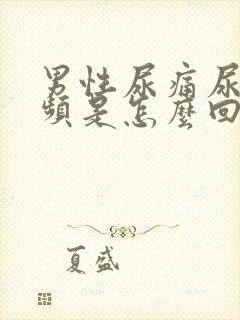 男性尿痛尿
頻是怎麼回
夏盛